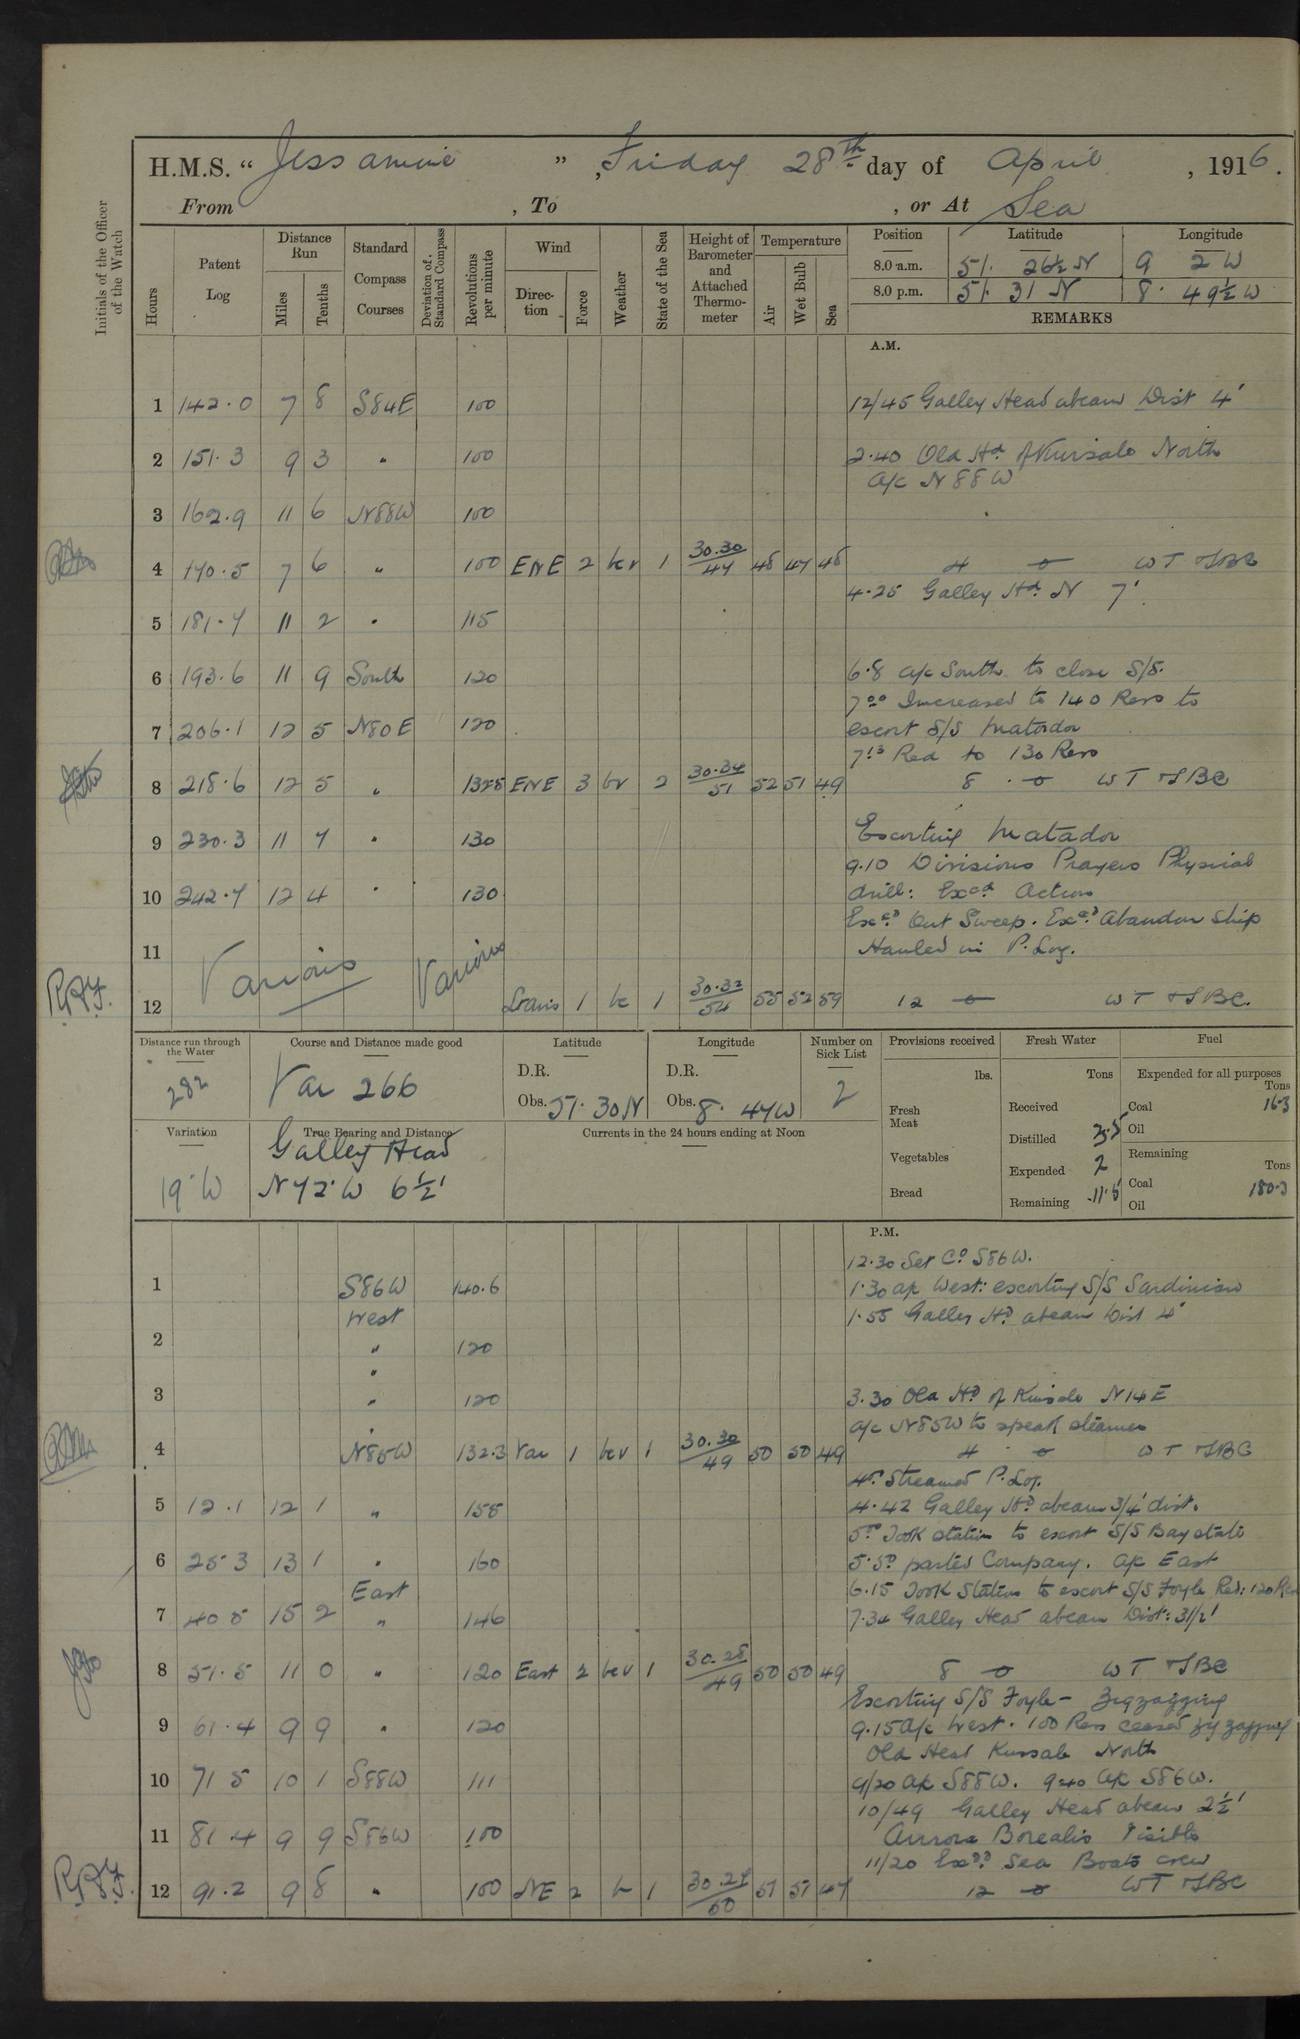 H.M.S. " Jessamine ", Friday 28th day of April, 1916.
From , To , or At Sea
Initials of the Officer of the Watch
Hours
Patent Log
Distance Run
Miles
Tenths
Standard Compass Courses
Deviation of Standard Compass
Revolutions per minute
Wind
Direction
Force
Weather
State of the Sea
Height of Barometer and Attached Thermometer
Temperature
Air
Wet Bulb
Sea
Position Latitude Longitude
8.0 a.m. 51. 26½ N 9 2 W
8.0 p.m. 51. 31 N 8. 49½ W
REMARKS
A.M.
1 142.0 7 8 S84E 100 12/45 Galley Head abeam Dist 4'
2 151.3 9 3 " 100 2.40 Old Hd. of Kinsale North
a/c N88W
3 162.9 11 6 N88W 100
4 170.5 7 6 " 100 ENE 2 bcv 1 30.30/47 48 47 48 4 WT & SBC
4.25 Galley Hd. N 7'
5 181.7 11 2 " 115
6 193.6 11 9 South 120 6.8 a/c South to close S/S.
7.00 Increased to 140 Revs to
7 206.1 12 5 N80E 120 escort S/S Matador
7.13 Red to 130 Revs
8 218.6 12 5 " 132.8 ENE 3 bv 2 30.34/51 52 51 49 8 WT & SBC
Escorting Matador
9 230.3 11 7 " 130
9.10 Divisions Prayers Physical
10 242.7 12 4 " 130 drill: Excd. Action
Excd. Out Sweep. Excd. Abandon Ship
11 Various Various Hauled in P. Log.
12 1 bc 1 30.32/54 55 52 59 12 WT & SBC.
Distance run through the Water
282
Course and Distance made good
Var 266
Latitude
D.R.
Obs. 51. 30 N
Longitude
D.R.
Obs. 8. 47 W
Number on Sick List
2
Provisions received
lbs.
Fresh Meat
Vegetables
Bread
Fresh Water
Tons
Received
Distilled
Expended 2
Remaining 11.5
Fuel
Expended for all purposes
Tons
Coal 16.3
Oil
Remaining
Tons
Coal 180.3
Oil
Variation
19° W
True Bearing and Distance
Galley Head
N 72° W 6½'
Currents in the 24 hours ending at Noon
P.M.
12.30 Set Co. S86W.
1 S86W 140.6 1.30 a/c West: escorting S/S Sardinian
West 1.55 Galley Hd. abeam Dist 4'
2 " 120
"
3 " 120 3.30 Old Hd. of Kinsale N14E
a/c N85W to speak steamer
4 N85W 132.3 Var 1 bcv 1 30.30/49 50 50 49 4 WT & SBC
Streamed P. Log.
5 12.1 12 1 " 158 4.42 Galley Hd. abeam 3/4' dist.
Took station to escort S/S Bay state
6 25 3 13 1 " 160 5.50 parted Company. a/c East
East 6.15 Took Station to escort S/S Foyle Red: 120 Revs
7 40 5 15 2 " 146 7.34 Galley Head abeam Dist: 3½'
8 51.5 11 0 " 120 East 2 bcv 1 30.28/49 50 50 49 8 WT & SBC
Escorting S/S Foyle - Zigzagging
9 61.4 9 9 " 120 9.15 a/c West. 100 Revs ceased zig zagging
Old Head Kinsale North
10 71 5 10 1 S88W 111 9/20 a/c S88W. 9.40 a/c S86W.
10/49 Galley Head abeam 2½'
11 81 4 9 9 S86W 100 Aurora Borealis Visible
11/20 Exd. Sea Boats crew
12 91.2 9 8 " 100 NE 2 1 30.27/50 51 51 47 12 WT & SBC